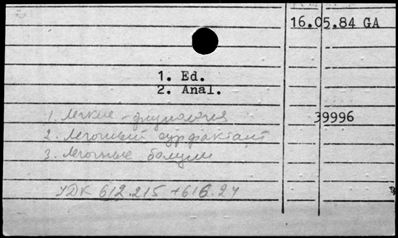 16.05.84 GA
1. Ed.
2. Anal.
1. Легкие - физиология
39996
2. Легочный сурфактант
3. Легочные болезни
УДК 612.215 + 616.24